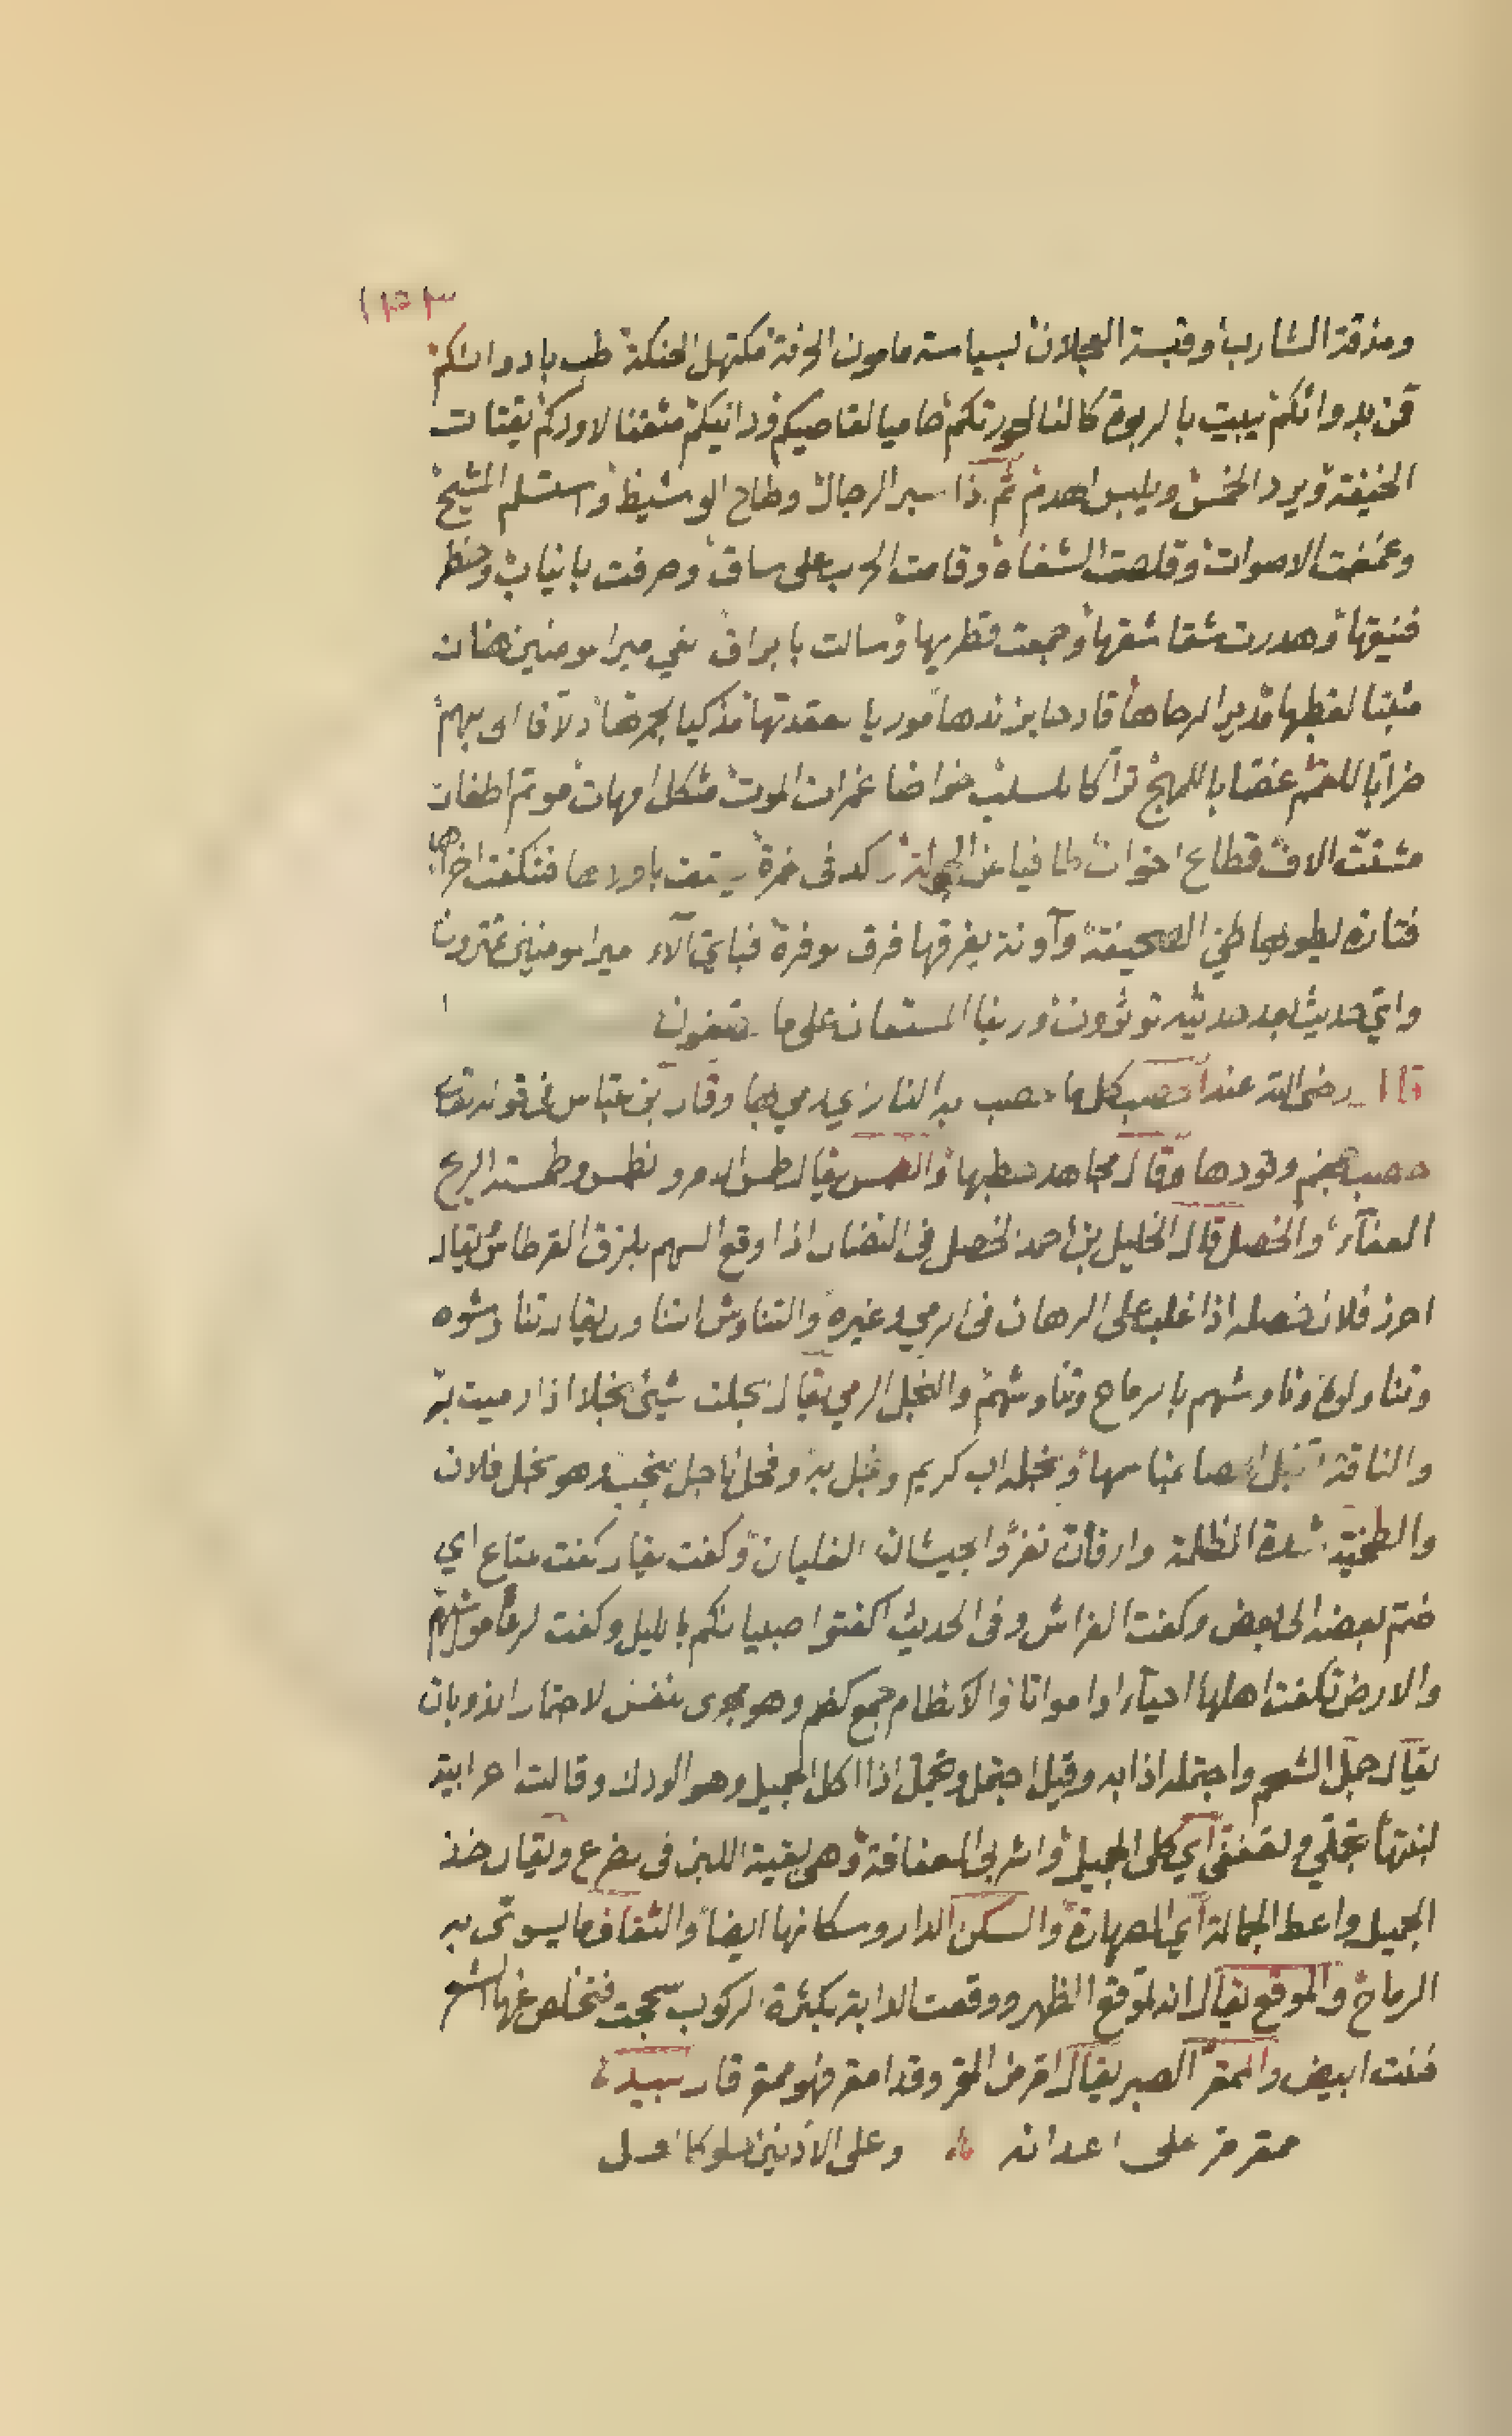 ١٣٣
ومذقة الشارب وقبسة العجلان لسياسة مامون الحرفة مكتهل الحنكة طب بادوائكم
قمن بدوائكم يبيت بالربوة كالئا لحوزتكم حاميا لقاصيكم ودانيكم مثقفا لاودكم يقتات
الخنيفة ويرد الخمس ويلبس الهدم ثم اذا سبر الرجال وطاح الوشيظ واستسلم المشيح
وغمغمت الاصوات وقلصت الشفاه وقامت الحرب على ساق وصرفت بانياب وخطر
فنيقها وهدرت شقاشقها وجمعت قطريها وسالت بابراق الفي امير المومنين هنالك
مثبتا لقطبها مديرا لرحاها قادحا بزندها موريا لعقدتها مذكيا لجمرها دلافا الى البهم
ضرابا للقمم غصابا للمهج تراكا للسلب خواضا غمرات الموت مثكل امهات موتم اطفال
مشتت الاف قطاع اخوات طافيا عن الجولة راكدا فى غمرة يهتف باولاها فتنكفت اخراها
فتارة يطويها طي الصحيفة وآونة يفرقها فرق الوفرة فباي آلاء امير المومنين تمترون
واي حديث بعد حديثه توثرون وربنا المستعان على ما تصفون
قال رضى الله عنه الحصب كل ما حصب به النار اي رمي بها وقال ابن عباس فى قوله تعالى
حصب جهنم وقودها وقال مجاهد حطبها والطمس يقال طمس الامر وانطمس وطمسته الريح
العفآء والخصل قال الخليل بن أحمد الخصل فى النضال اذا وقع السهم بلزق القرطاس يقال
احرز فلان خصله اذا غلب على الرهان فى الرمي وغيره والتناوش التناول يقال تناوشوه
وتناولوه وناوشهم بالرماح وتناوشهم والنجل الرمي يقال نجلت شيئ نجلا اذا رميت به
والناقة تنجل الحصا بمناسمها ونجله اب كريم ونجل به وفحل ناجل منجب وهو نجل فلان
والطخية شدة الظلمة وارفأن نفر والجيشان الغليان وكفت يقال كفت المتاع اي
ضم بعضه الى بعض وكفت الفراش وفى الحديث اكفتوا صبيانكم بالليل وكفت الرعاة مواشيهم
والارض تكفت اهلها احيآء او امواتا والاكظام جمع كظم وهو مجرى النفس الاجتمال الذوبان
يقال جمل الشحم واجتمله اذابه وقيل اجتمل وتجمل اذا اكل الجميل وهو الودك وقالت اعرابية
لبنتها تجملي وتعففي اي كلى الجميل واشربى العفافة وهى بقية اللبن فى الضرع ويقال خذ
الجميل واعط الجمالة اي الصهارة والسكن الدار وسكانها ايضا والثقاف ما يسوى به
الرماح والموقع يقال انه لموقع الظهر ووقعت الدابة بكثرة الركوب سحجت فتخلص عنها الشعر
فنبت ابيض والممقر الصبر يقال امر من المقر وقد امقر فهو ممقر قال لبيد
ممقر مر على اعدائه وعلى الادنين حلو كالعسل